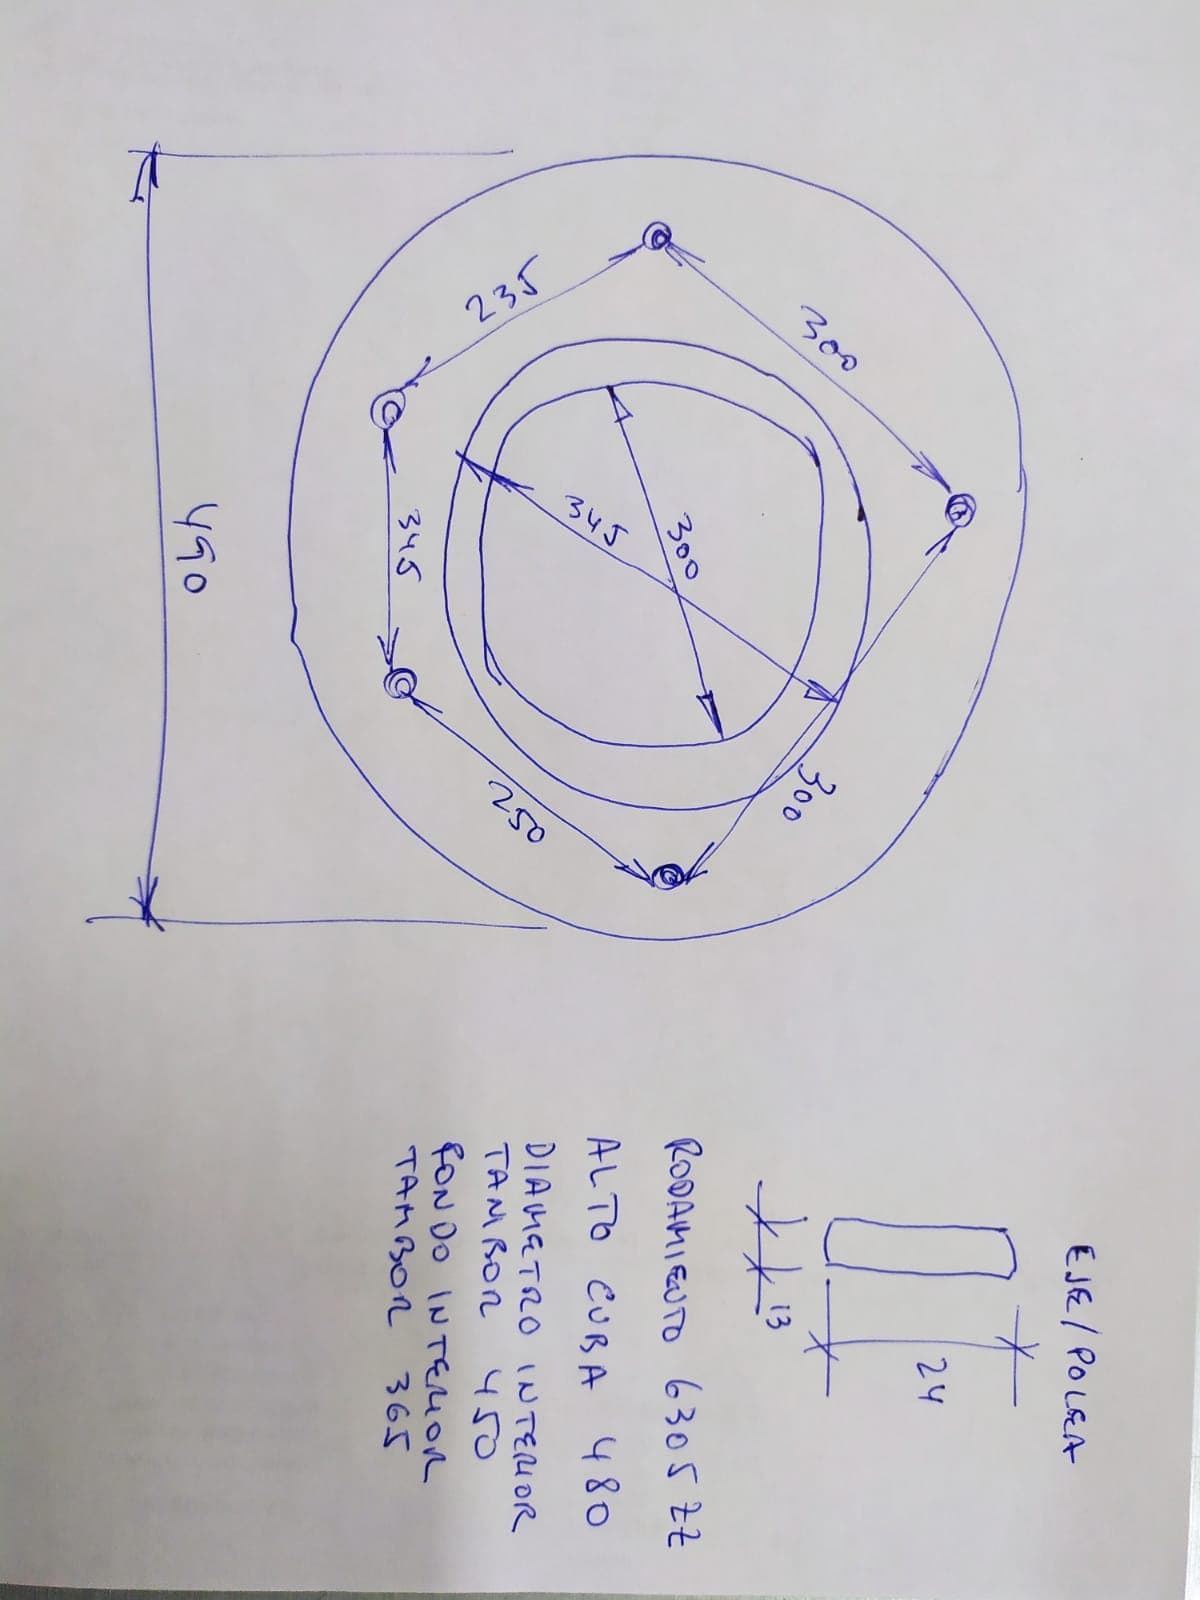 490
235
300
345
300
345
250
300
EJE/POLEA
24
13
RODAMIENTO 6305 ZZ
ALTO CUBA 480
DIAMETRO INTERIOR
TAMBOR 450
FONDO INTERIOR
TAMBOR 365